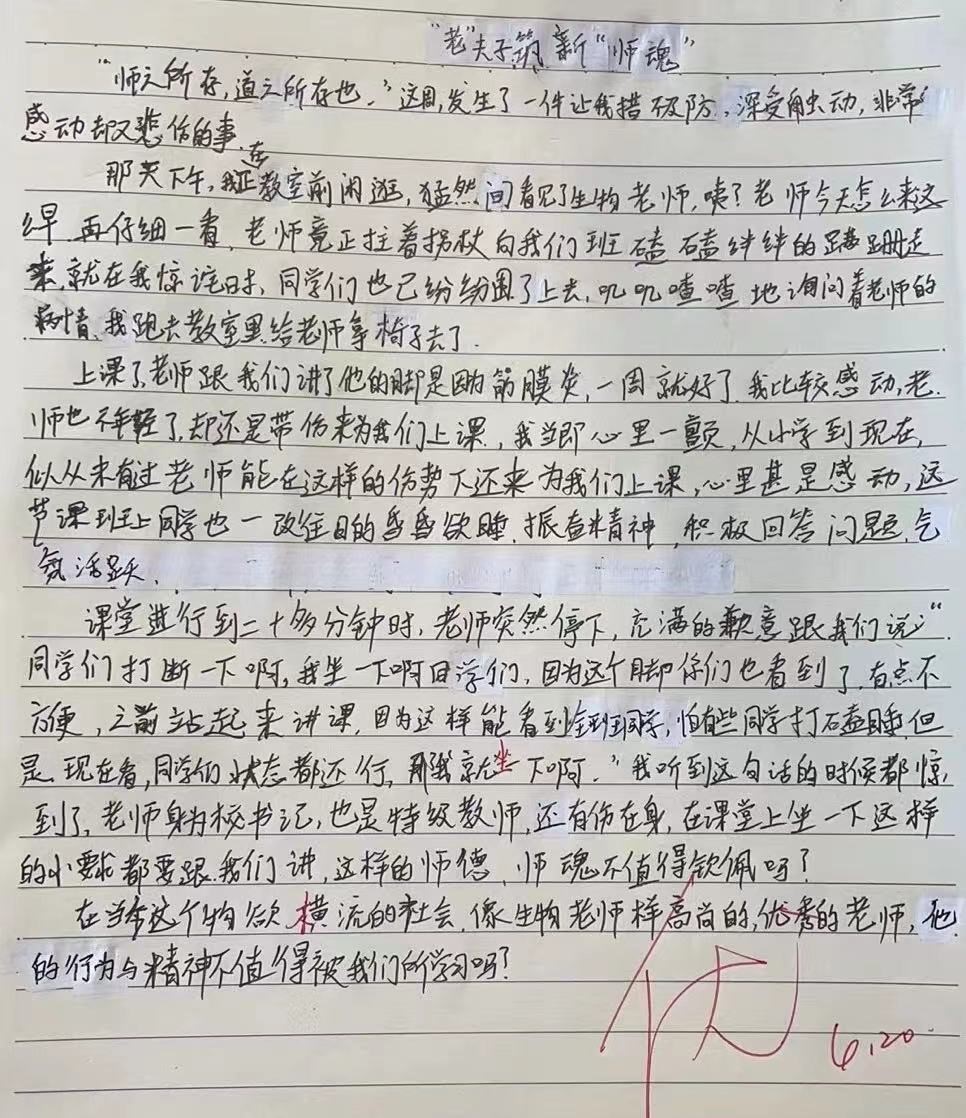 “老”夫子筑新“师魂”
“师之所存，道之所存也。”这周，发生了一件让我措不及防，深受触动，非常
感动却又悲伤的事。
那天下午，我正在教室前闲逛，猛然间看见了生物老师，咦？老师今天怎么来这
么早。再仔细一看，老师竟正拄着拐杖向我们班磕磕绊绊的蹒跚走
来，就在我惊诧时，同学们也已纷纷围了上去，叽叽喳喳地询问着老师的
病情，我跑去教室里给老师拿椅子去了。
上课了，老师跟我们讲了他的脚是因为筋膜炎，一周就好了，我比较感动，老
师也不年轻了，却还是带伤来为我们上课，我当即心里一颤，从小学到现在，
似从未有过老师能在这样的伤势下还来为我们上课，心里甚是感动，这
节课班上同学也一改往日的昏昏欲睡，振奋精神，积极回答问题，气
氛活跃。
课堂进行到二十多分钟时，老师突然停下，充满的歉意跟我们说：“
同学们打断一下啊，我坐一下啊同学们，因为这个脚你们也看到了，有点不
方便，之前站起来讲课，因为这样能看到全班同学，怕有些同学打磕睡，但
是，现在看，同学们状态都还行，那我就坐下啊。”我听到这句话的时候都惊
到了，老师身为校书记，也是特级教师，还有伤在身，在课堂上坐一下这样
的小要求都要跟我们讲，这样的师德，师魂不值得钦佩吗？
在当今这个物欲横流的社会，像生物老师样高尚的，优秀的老师，他
的行为与精神不值得被我们所学习吗？
优
6.20